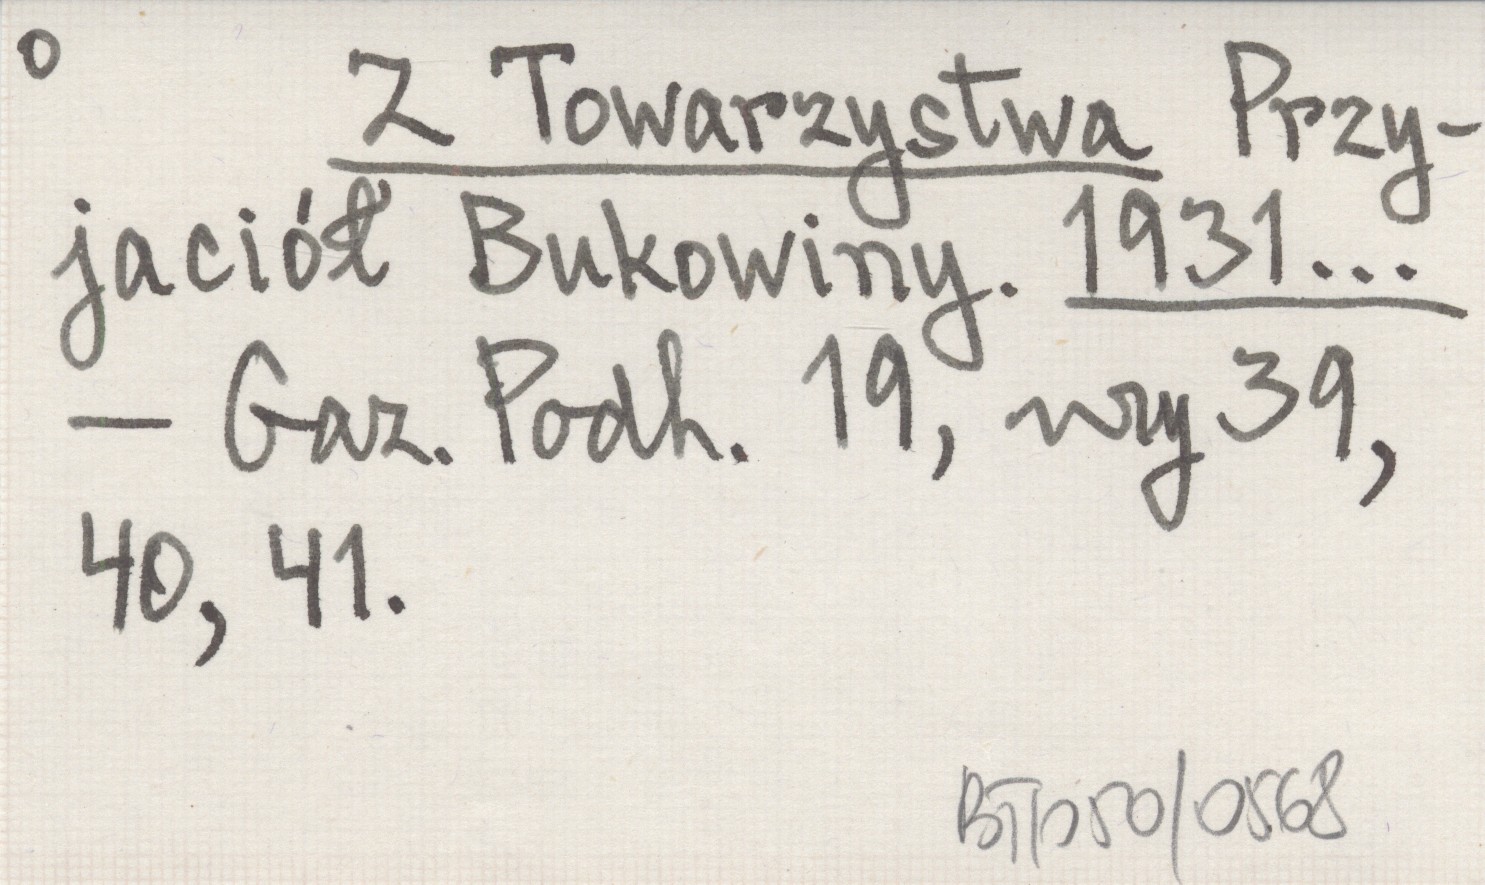 o
Z Towarzystwa Przy-
jaciół Bukowiny. 1931...
— Gaz. Podh. 19, nry 39,
40, 41.
BT/050/0568